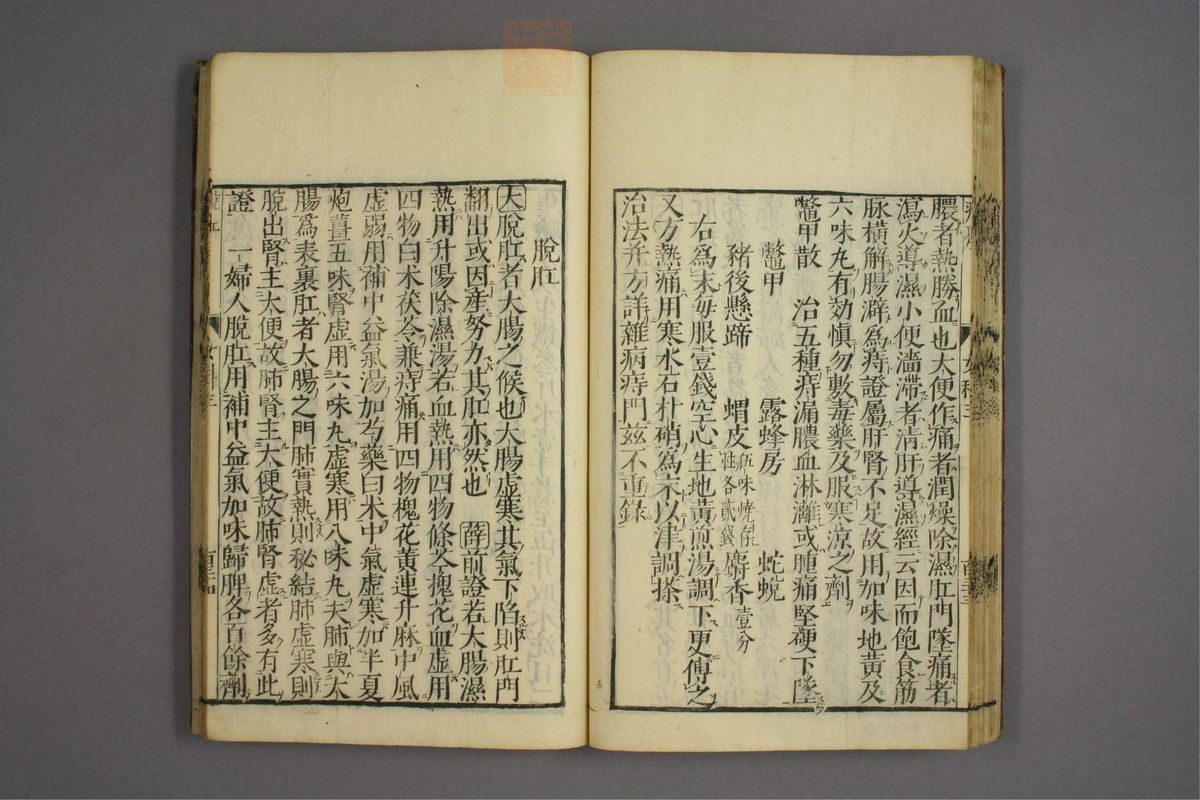 膿者熱勝血也大便作痛者潤燥除濕肛門墜痛者
瀉火導濕小便濇滯者清肝導濕經云因而飽食筋
脉橫解腸澼為痔證屬肝腎不足故用加味地黃及
六味丸有効慎勿敷毒藥及服寒涼之劑
鱉甲散　治五種痔漏膿血淋漓或腫痛堅硬下墜
鱉甲　露蜂房　蛇蛻
豬後懸蹄　蝟皮伍味燒存性各貳錢　麝香壹分
右為末每服壹錢空心生地黃煎湯調下更傅之
又方熱痛用寒水石朴硝為末以津調搽
治法并方詳雜病痔門茲不重錄
脫肛
大脫肛者大腸之候也大腸虛寒其氣下陷則肛門
翻出或因產努力其肛亦然也　薛前證若大腸濕
熱用升陽除濕湯若血熱用四物條芩槐花血虛用
四物白朮茯苓兼痔痛用四物槐花黃連升麻中風
虛弱用補中益氣湯加芍藥白朮中氣虛寒加半夏
炮薑五味腎虛用六味丸虛寒用八味丸夫肺與大
腸為表裏肛者大腸之門肺實熱則秘結肺虛寒則
脫出腎主大便故肺腎主大便故肺腎虛者多有此
證　一婦人脫肛用補中益氣加味歸脾各百餘劑